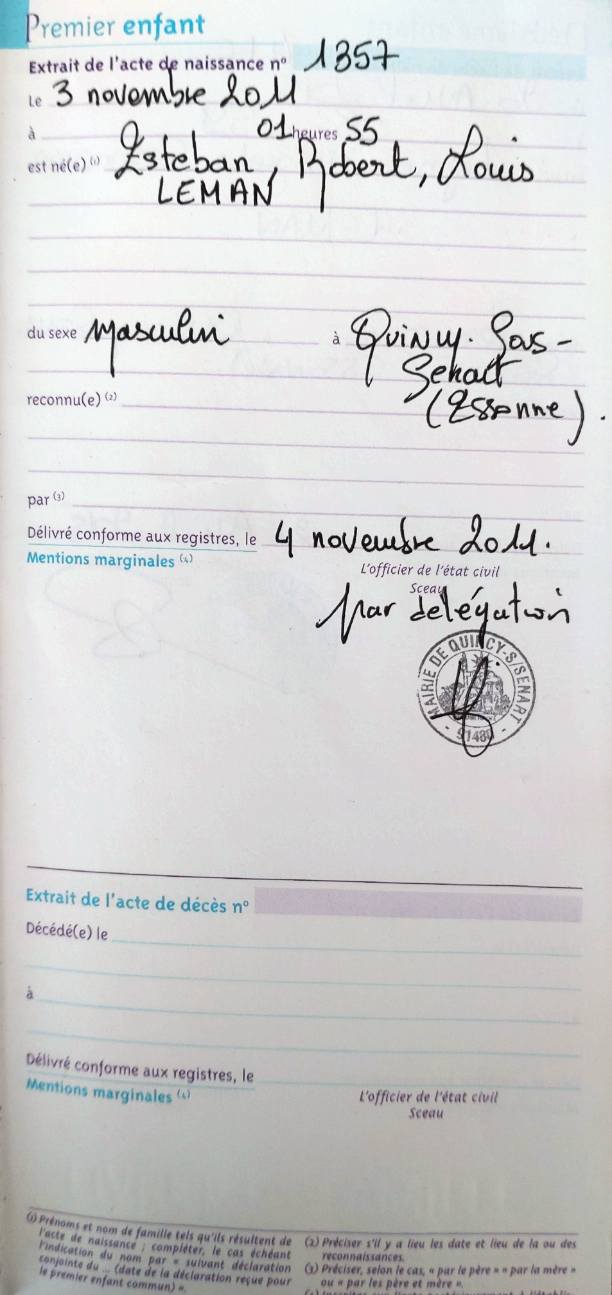 Premier enfant
Extrait de l'acte de naissance n° 1357
Le 3 novembre 2011
à 01 heures 55
est né(e) (1) Esteban, Robert, Louis
LEMAN
du sexe Masculin à Quincy-Sous-
Senart
reconnu(e) (2)
(Essonne).
par (3)
Délivré conforme aux registres, le 4 novembre 2011.
Mentions marginales (4)
L'officier de l'état civil
Sceau
par délégation
MAIRIE DE QUINCY-S/SENART
- 91480 -
Extrait de l'acte de décès n°
Décédé(e) le
à
Délivré conforme aux registres, le
Mentions marginales (4)
L'officier de l'état civil
Sceau
(1) Prénoms et nom de famille tels qu'ils résultent de
l'acte de naissance ; compléter, le cas échéant
l'indication du nom par « suivant déclaration
conjointe du ... (date de la déclaration reçue pour
le premier enfant commun) ».
(2) Préciser s'il y a lieu les date et lieu de la ou des
reconnaissances.
(3) Préciser, selon le cas, « par le père » « par la mère »
ou « par les père et mère ».